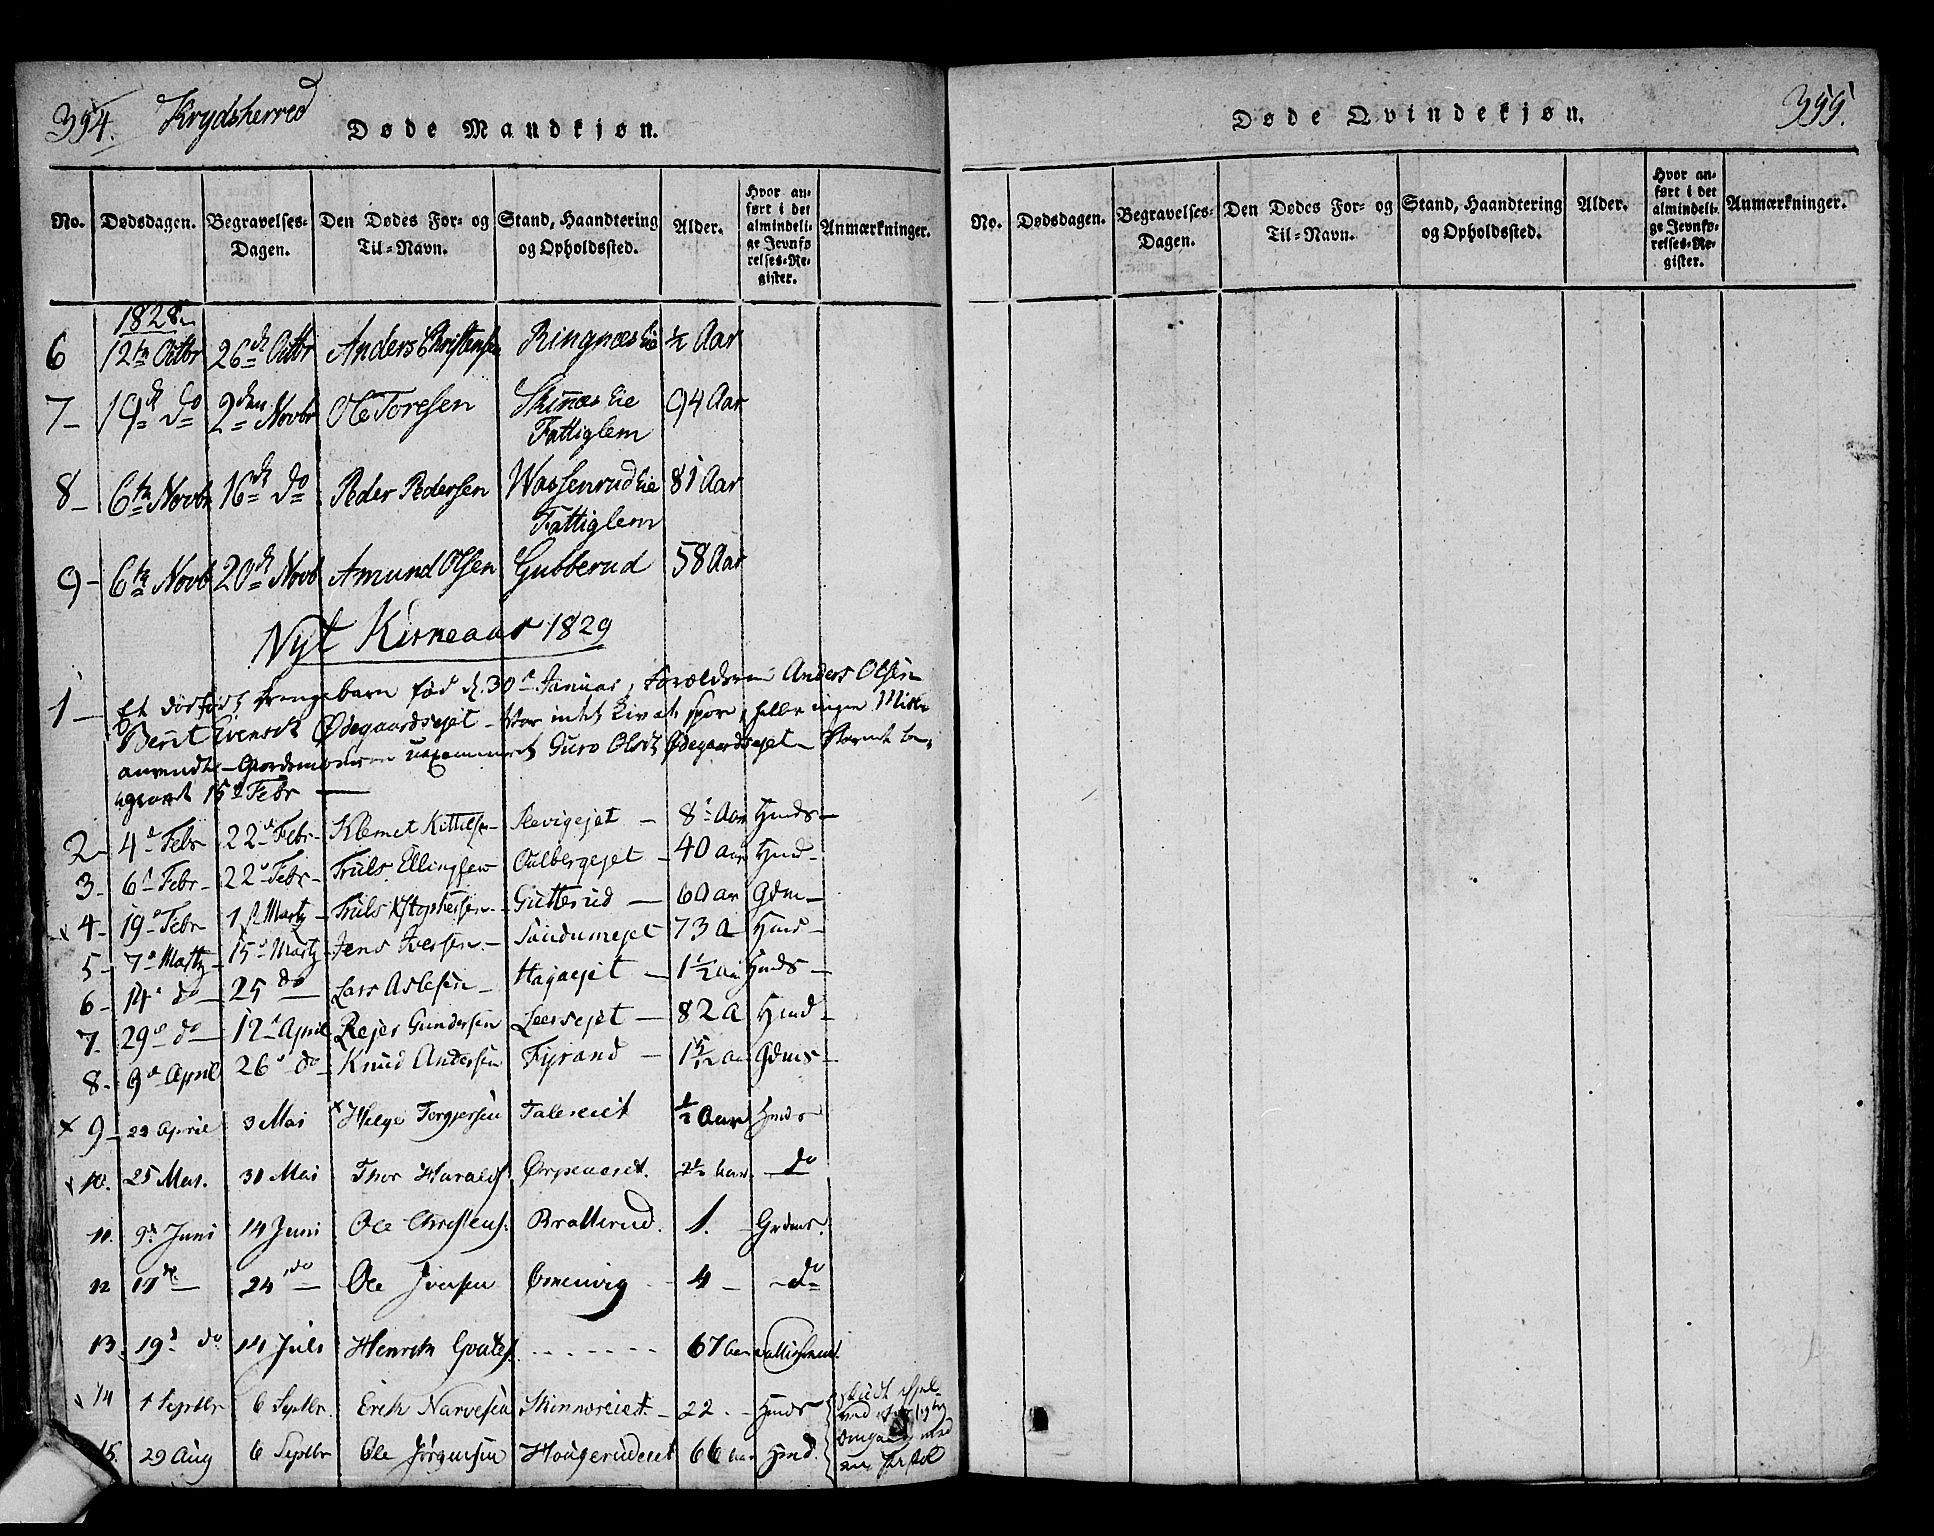 354. Krydsherred Døde Mandkjøn.
No. Dødsdagen. Begravelses-Dagen. Den Dødes For- og Til-Navn. Stand, Haandtering og Opholdssted. Alder. Hvor anført i det almindelige Jevnførelses-Register. Anmærkninger.
1828
6 12te Octbr 26de Octbr Anders Christensen Ringnæs Eie ½ Aar
7 19de do 2den Novbr Ole Toresen Skinnæs Eie 94 Aar
Fattiglem
8 6te Novbr 16de do Peder Pedersen Wassenrud Eie 81 Aar
Fattiglem
9 6te Novb 20de Novb Amund Olsen Gubberud 58 Aar
Nyt Kirkeaar 1829
1 Et dødfødt Drengebarn fød d. 30d Januar, Forældrene Anders Olsen
Berit Evensd. Ødegaardsejet - Var intet Livets spor, heller ingen
anvendte - Gjordemoderen uexamineret Guro Olsd. Ødegaardsejet -
15d Febr
2 4d Febr 22d Febr Klemet Kittilsen Slevigejet 8 Aar Hmds
3 6d Febr 22d Febr Truls Ellingsen Oulbergejet 40 aar Hmd
4 19d Febr 1st Martz Truls Xstophersen Gutterud 60 ar Gdm
5 7d Martz 15d Martz Jens Iversen Sandumejet 73 a Hmd
6 14d do 25 do Lars Aslesen Hagaejet 1½ aar Hmds
7 29d do 12d April Rejer Gundersen Leersejet 82 a Hmd
8 9d April 26d do Knud Andersen Fyrand 1 5/12 aar Gdms
9 22 April 3 Mai Helge Torgersen Taleseiet ½ Aar Hmds
10. 25 Mai. 31 Mai Thor Haralds. 2½ Aar do
11. 9de Juni 14 Juni Ole Christens. Bratterud. 1. Grdms.
12 17de 24 do Ole Iversen Ormenvig 4 do
13. 19d do 14 Juli Henrich 67 aar
14 1 Septbr 6 Septbr. Erik Narvesen Skinnæseiet 22 Hmds
15. 29 Aug 6 Septbr Ole Jørgensen Hougerudeiet 66 aar Hmd.
Døde Qvindekjøn. 355.
No. Dødsdagen. Begravelses-Dagen. Den Dødes For- og Til-Navn. Stand, Haandtering og Opholdssted. Alder. Hvor anført i det almindelige Jevnførelses-Register. Anmærkninger.